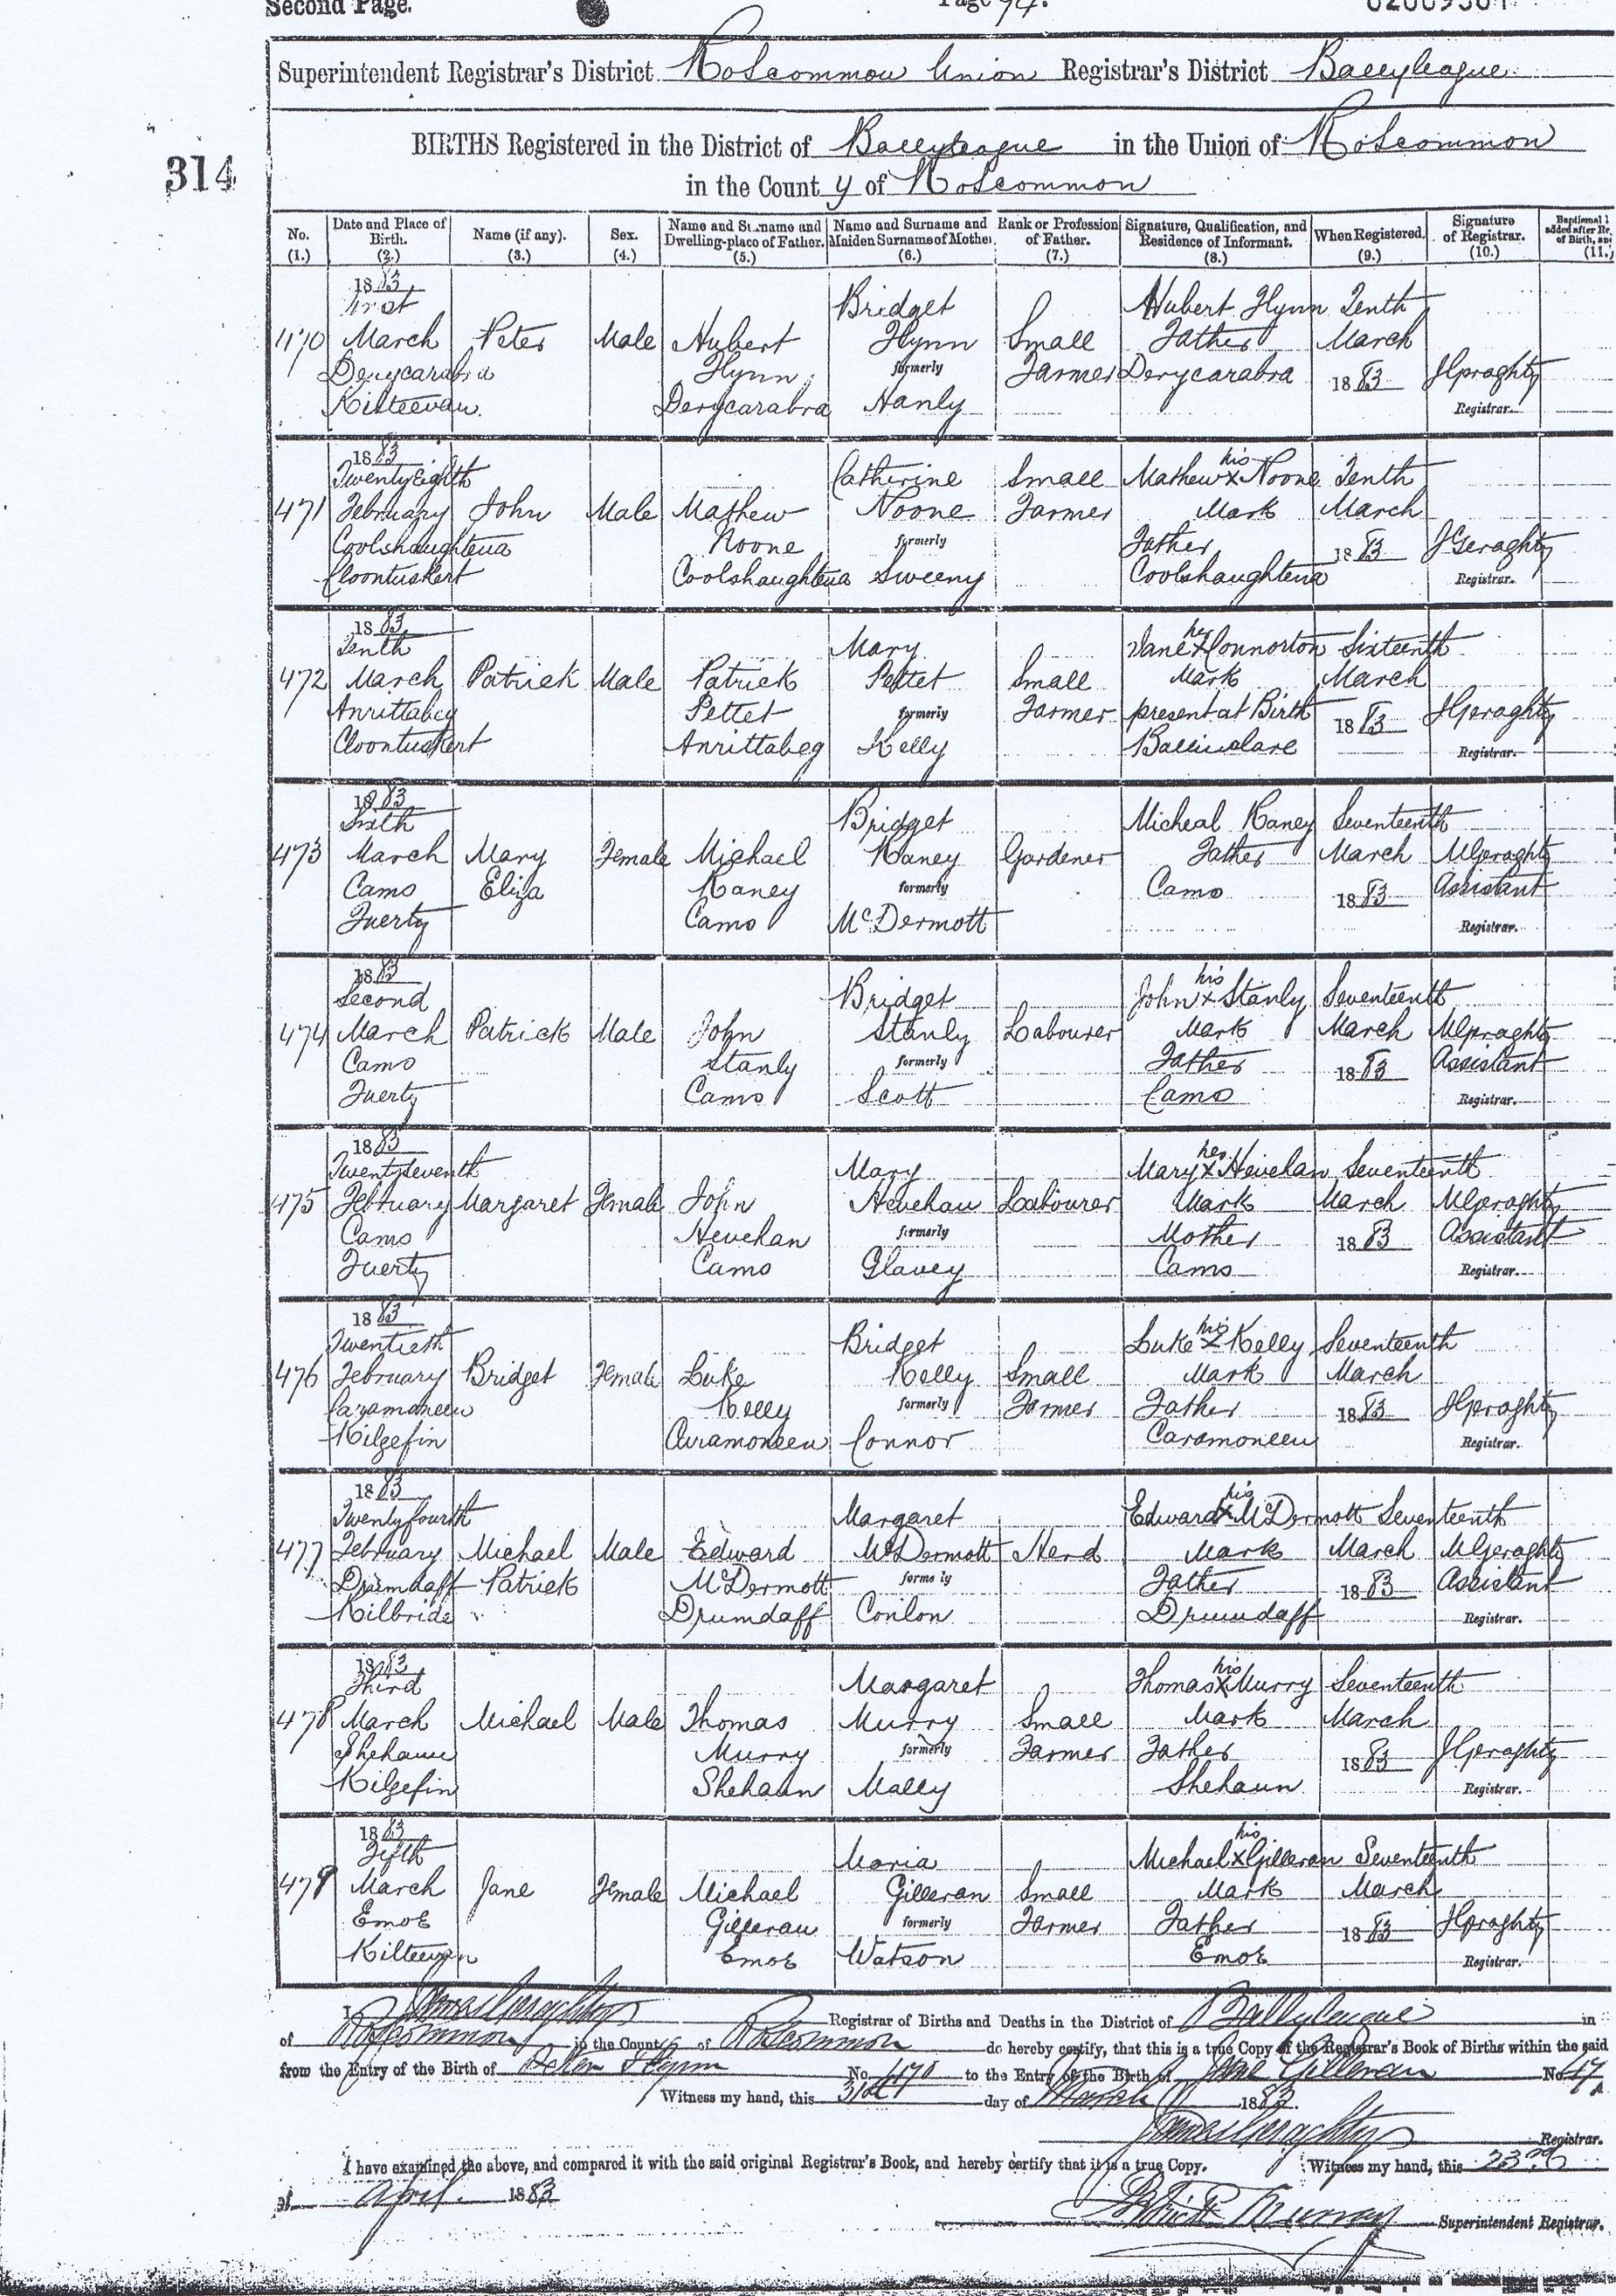 Second Page.
Page 94.
Superintendent Registrar's District Roscommon Union Registrar's District Ballyleague
314
BIRTHS Registered in the District of Ballyleague in the Union of Roscommon
in the County of Roscommon
No. (1.) Date and Place of Birth. (2.) Name (if any). (3.) Sex. (4.) Name and Surname and Dwelling-place of Father. (5.) Name and Surname and Maiden Surname of Mother (6.) Rank or Profession of Father. (7.) Signature, Qualification, and Residence of Informant. (8.) When Registered. (9.) Signature of Registrar. (10.) (11.)
1883
First Bridget Hubert Flynn Tenth
470 March Peter Male Hubert Flynn Small Father March
Derycarabra Flynn formerly Farmer Derycarabra 1883 JGeraghty
Kilteevan. Derycarabra Hanly Registrar.
1883
Twenty Eighth Catherine Small Mathew his x Noone Tenth
471 February John Male Mathew Noone Farmer Mark March
Coolshaughtena Noone formerly Father 1883 JGeraghty
Cloontuskert Coolshaughtena Sweeny Coolshaughtena Registrar.
1883
Tenth Mary Jane her x Connorton Sixteenth
472 March Patrick Male Patrick Pettet Small Mark March
Anrittabeg Pettet formerly Farmer present at Birth 1883 JGeraghty
Cloontuskert Anrittabeg Kelly Ballinclare Registrar.
1883
Sixth Bridget Micheal Raney Seventeenth
473 March Mary Female Michael Raney Gardener Father March MGeraghty
Camo Eliza Raney formerly Camo 1883 Assistant
Fuerty Camo McDermott Registrar.
1883
Second Bridget John his x Stanly Seventeenth
474 March Patrick Male John Stanly Labourer Mark March MGeraghty
Camo Stanly formerly Father 1883 Assistant
Fuerty Camo Scott Camo Registrar.
1883
Twenty Seventh Mary Mary her x Hevehan Seventeenth
475 February Margaret Female John Hevehan Labourer Mark March MGeraghty
Camo Hevehan formerly Mother 1883 Assistant
Fuerty Camo Glavey Camo Registrar.
1883
Twentieth Bridget Luke his x Kelly Seventeenth
476 February Bridget Female Luke Kelly Small Mark March
Caramoneen Kelly formerly Farmer Father 1883 JGeraghty
Kilgefin Caramoneen Connor Caramoneen Registrar.
1883
Twenty fourth Margaret Edward his x McDermott Seventeenth
477 February Michael Male Edward McDermott Herd Mark March MGeraghty
Drumdaff Patrick McDermott formerly Father 1883 Assistant
Kilbride Drumdaff Conlon Drumdaff Registrar.
1883
Third Margaret Thomas his x Murry Seventeenth
478 March Michael Male Thomas Murry Small Mark March
Shehaun Murry formerly Farmer Father 1883 JGeraghty
Kilgefin Shehaun Mally Shehaun Registrar.
1883
Fifth Maria Michael his x Gilleran Seventeenth
479 March Jane Female Michael Gilleran Small Mark March
Emoe Gilleran formerly Farmer Father 1883 JGeraghty
Kilteevan Emoe Watson Emoe Registrar.
I James Geraghty Registrar of Births and Deaths in the District of Ballyleague in
of Roscommon in the County of Roscommon do hereby certify, that this is a true Copy of the Registrar's Book of Births within the said
from the Entry of the Birth of Peter Flynn No. 470 to the Entry of the Birth of Jane Gilleran No. 47
Witness my hand, this 31st day of March 1883.
James Geraghty Registrar.
I have examined the above, and compared it with the said original Registrar's Book, and hereby certify that it is a true Copy. Witness my hand, this 23rd
of April 1883
Patrick Murray Superintendent Registrar.